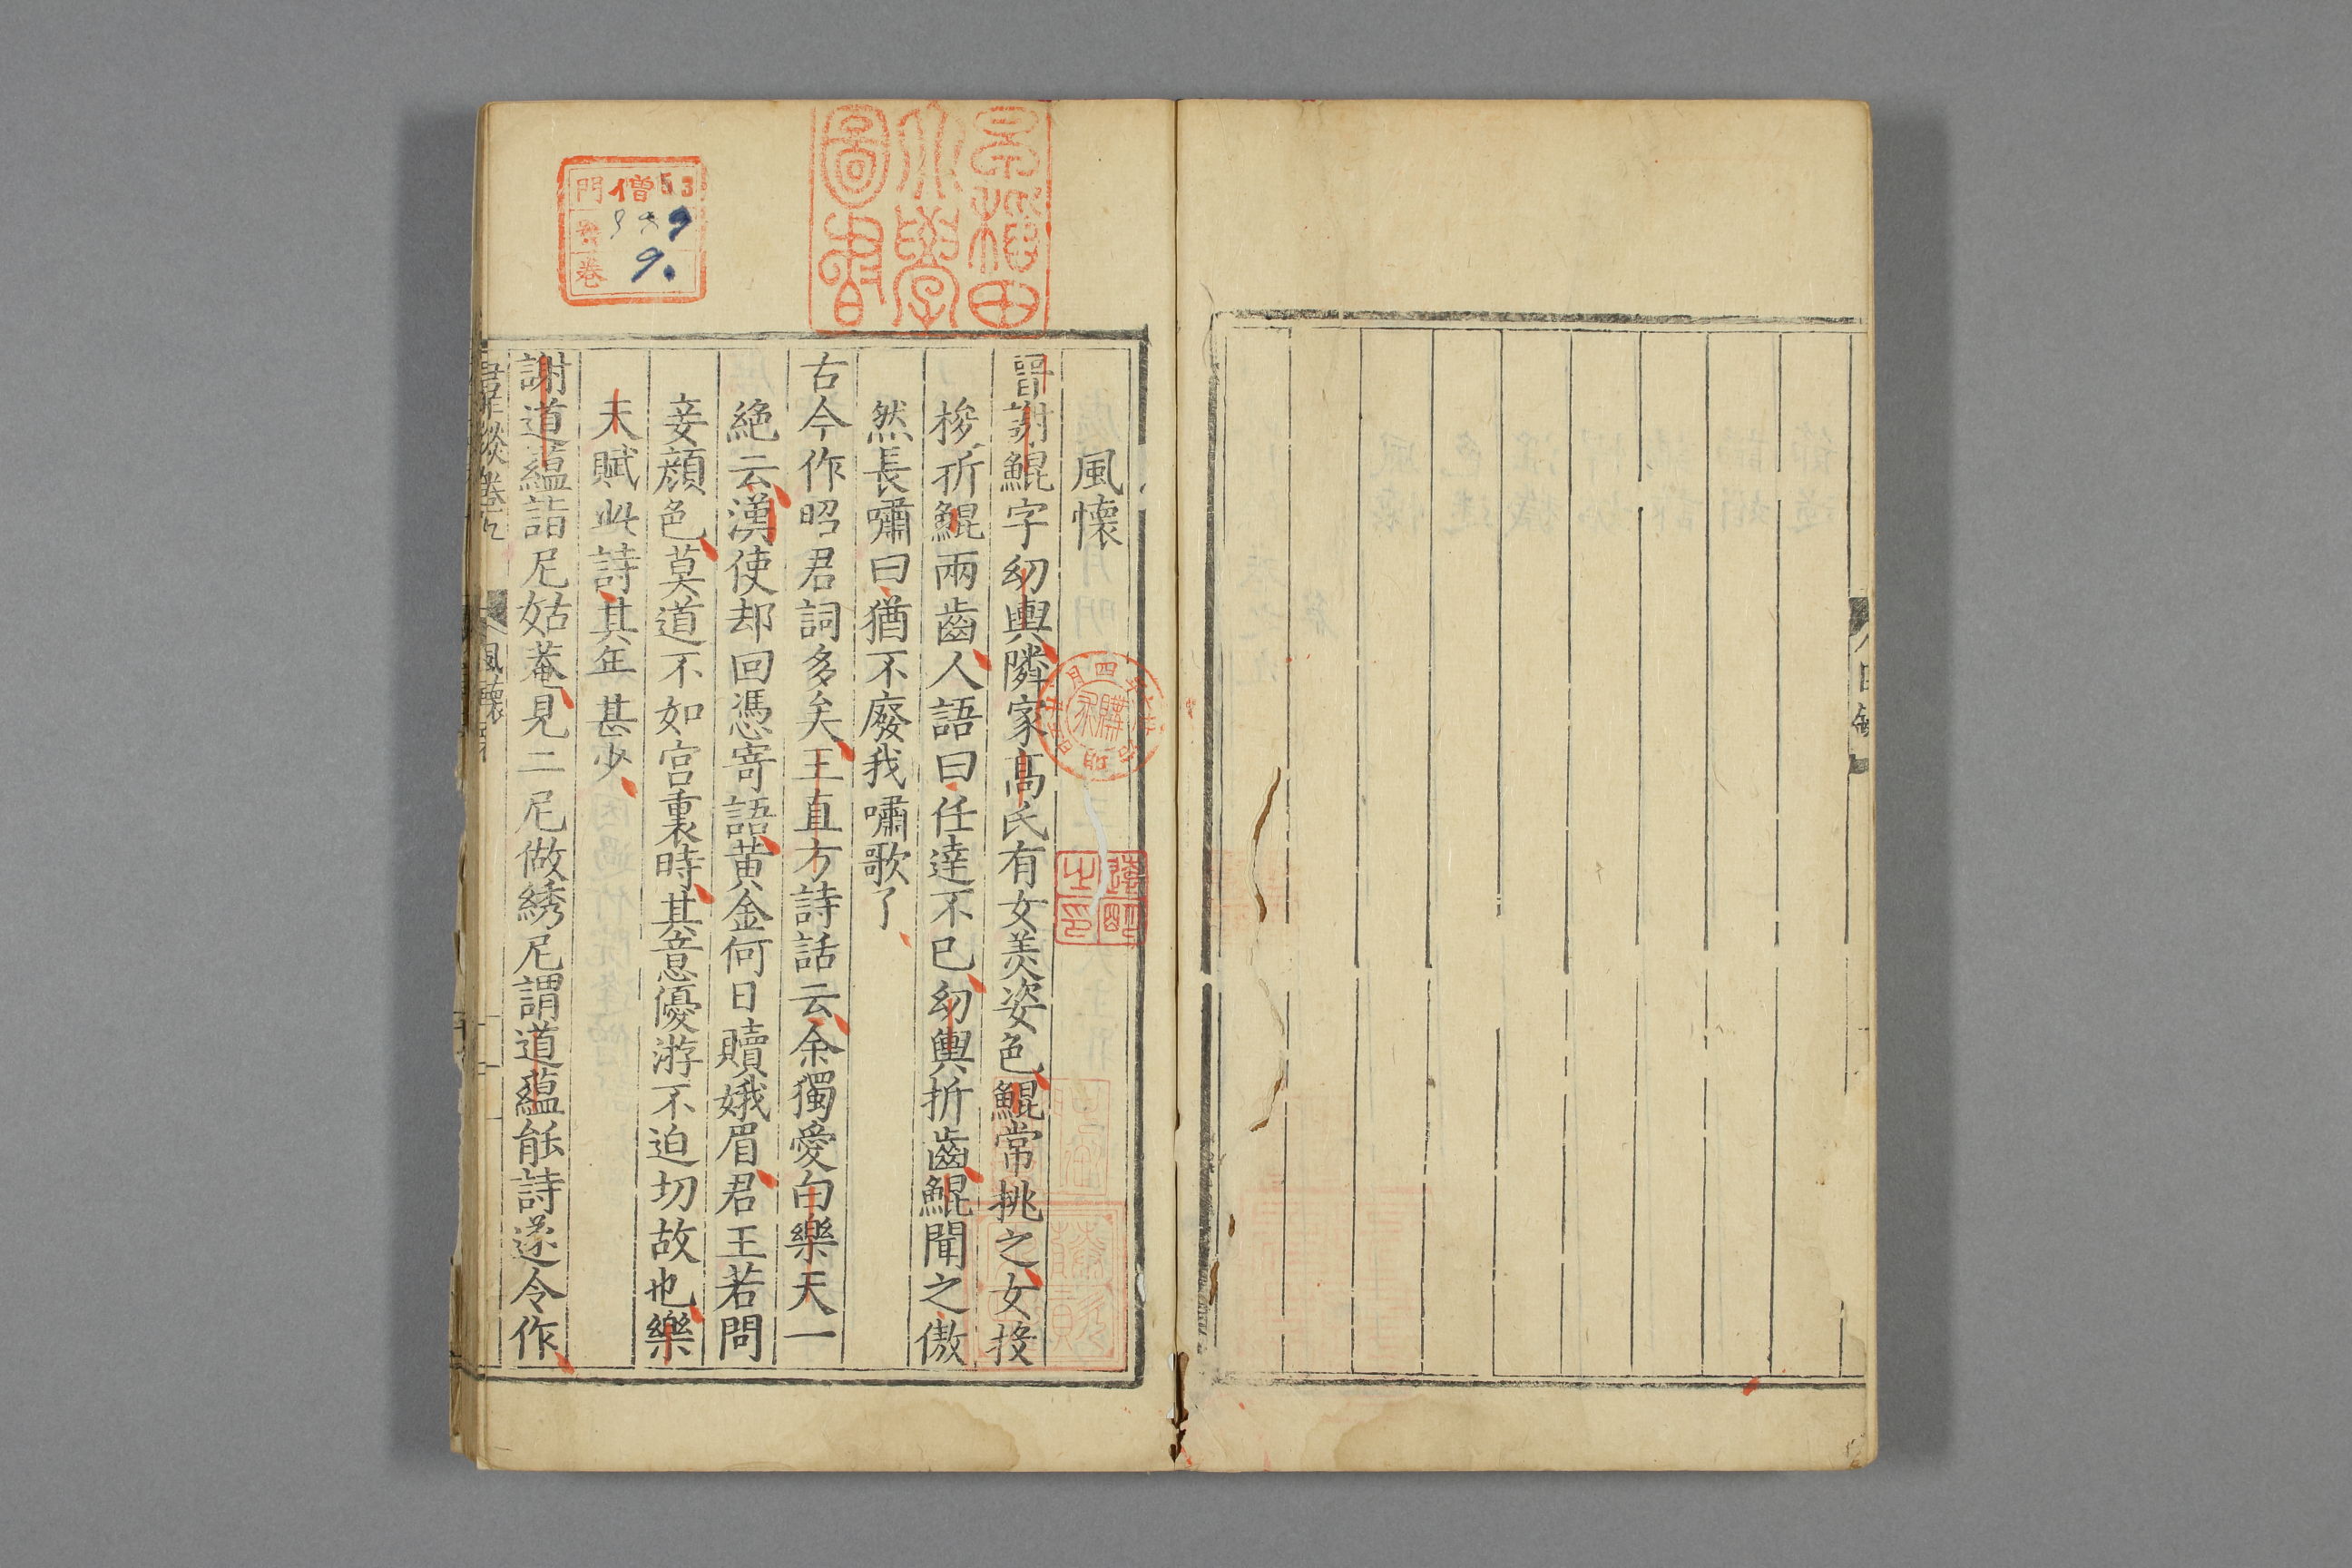 風懷
晉謝鯤字幼輿隣家髙氏有女美姿色鯤常挑之女投
梭折鯤兩齒人語曰任達不已幼輿折齒鯤聞之傲
然長嘯曰猶不廢我嘯歌了
古今作昭君詞多矣王直方詩話云余獨愛白樂天一
絶云漢使却回憑寄語黄金何日贖娥眉君王若問
妾顔色莫道不如宫裏時其意優游不迫切故也樂
天賦此詩其年甚少
謝道蘊詣尼姑菴見二尼做綉尼謂道蘊能詩遂令作
風懷
早稲田
大學
圖書
門 僧 53
巻 9.